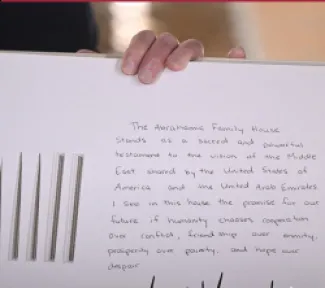 The Abrahamic Family House
stands as a sacred and powerful
testament to the vision of the Middle
East shared by the United States of
America and the United Arab Emirates
I see in this house the promise for our
future if humanity chooses cooperation
over conflict, friendship over enmity,
prosperity over poverty, and hope over
despair